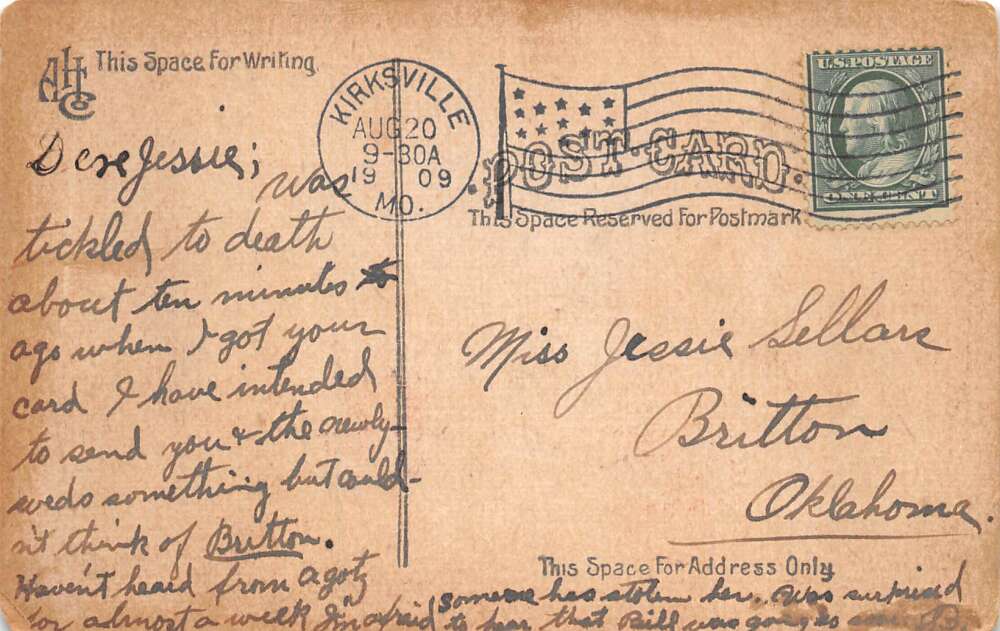 AHCo
This Space For Writing
KIRKSVILLE
AUG 20
9-30A
1909
MO.
U.S. POSTAGE
ONE CENT
POST CARD
This Space Reserved For Postmark
Dere Jessie;
was
tickled to death
about ten minutes
ago when I got your
card I have intended
to send you & the newly-
weds something but could-
n't think of Britton.
Haven't heard from
for almost a week I'm afraid someone has stolen her. Was surprised
to hear that Bill was going so
Miss Jessie Sellars
Britton
Oklahoma.
This Space For Address Only